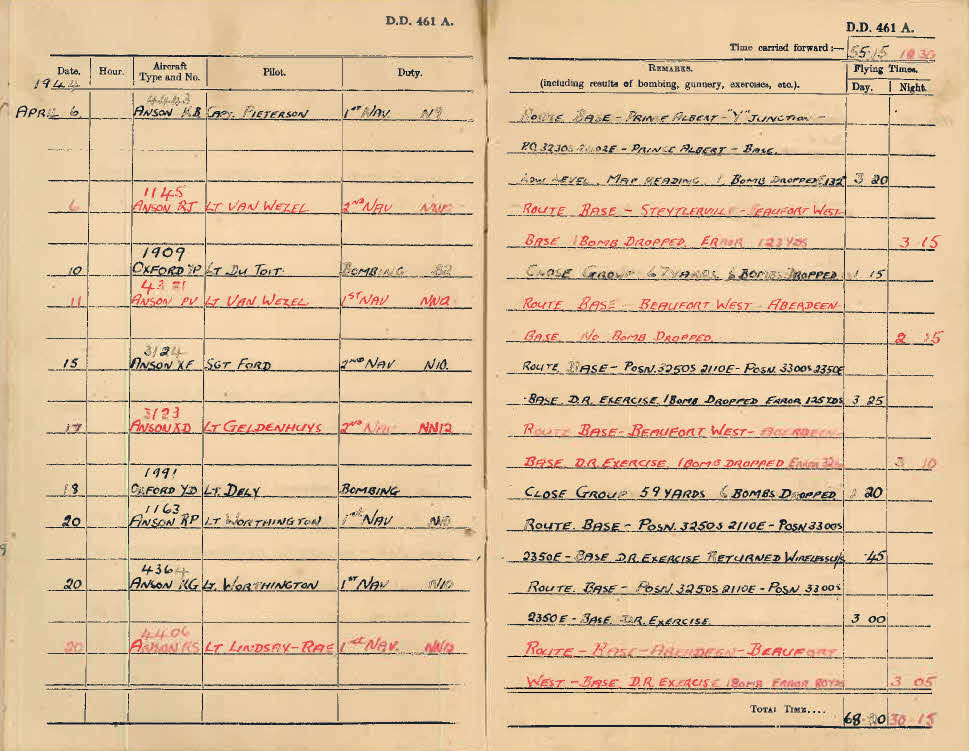 D.D. 461 A.
Date. Hour. Aircraft Type and No. Pilot. Duty.
1944
4423
APRIL 6 ANSON Capt. PIETERSON 1ST NAV N9
1145
6 ANSON RJ LT VAN WEZEL 2ND NAV
1909
10 OXFORD YP LT DU TOIT BOMBING B2
43 21
11 ANSON PV LT VAN WEZEL 1ST NAV NN12
3124
15 ANSON XF SGT FORD 2ND NAV N10.
3123
17 ANSON XD LT GELDENHUYS 2ND NAV NN12
1991
18 OXFORD YD LT. DELY BOMBING
1163
20 ANSON RP LT WORTHINGTON 1ST NAV N10
4364
20 ANSON RG LT. WORTHINGTON 1ST NAV N10
4406
20 ANSON RS LT LINDSAY-RAE 1ST NAV. NN12
D.D. 461 A.
Time carried forward:— 55·15 18 30
REMARKS. Flying Times.
(including results of bombing, gunnery, exercises, etc.). Day. Night.
ROUTE BASE - PRINCE ALBERT - "Y" JUNCTION -
PRINCE ALBERT - BASE.
LOW LEVEL. MAP READING. 1 BOMB DROPPED 3 20
ROUTE BASE - STEYTLERVILLE - BEAUFORT WEST-
BASE 1 BOMB DROPPED. ERROR 123 YDS 3 15
CLOSE GROUP 67 YARDS 6 BOMBS DROPPED 1 15
ROUTE BASE - BEAUFORT WEST - ABERDEEN
BASE. NO BOMB DROPPED. 2 15
ROUTE. BASE - POSN. 3250S 2110E - POSN. 3300S 2350E
BASE. D.R. EXERCISE. 1 BOMB DROPPED ERROR 125 YDS 3 25
ROUTE BASE - BEAUFORT WEST - ABERDEEN-
BASE. D.R. EXERCISE. 1 BOMB DROPPED ERROR 3 10
CLOSE GROUP 59 YARDS 6 BOMBS DROPPED 1 20
ROUTE. BASE - POSN. 3250S 2110E - POSN 3300S
2350E - BASE D.R. EXERCISE RETURNED WIRELESS U/S ·45
ROUTE. BASE - POSN. 3250S 2110E - POSN 3300S
2350E - BASE. D.R. EXERCISE. 3 00
ROUTE - BASE - ABERDEEN - BEAUFORT
WEST - BASE. D.R. EXERCISE 1 BOMB ERROR 80 YDS 3 05
TOTAL TIME.... 68·20 30·15